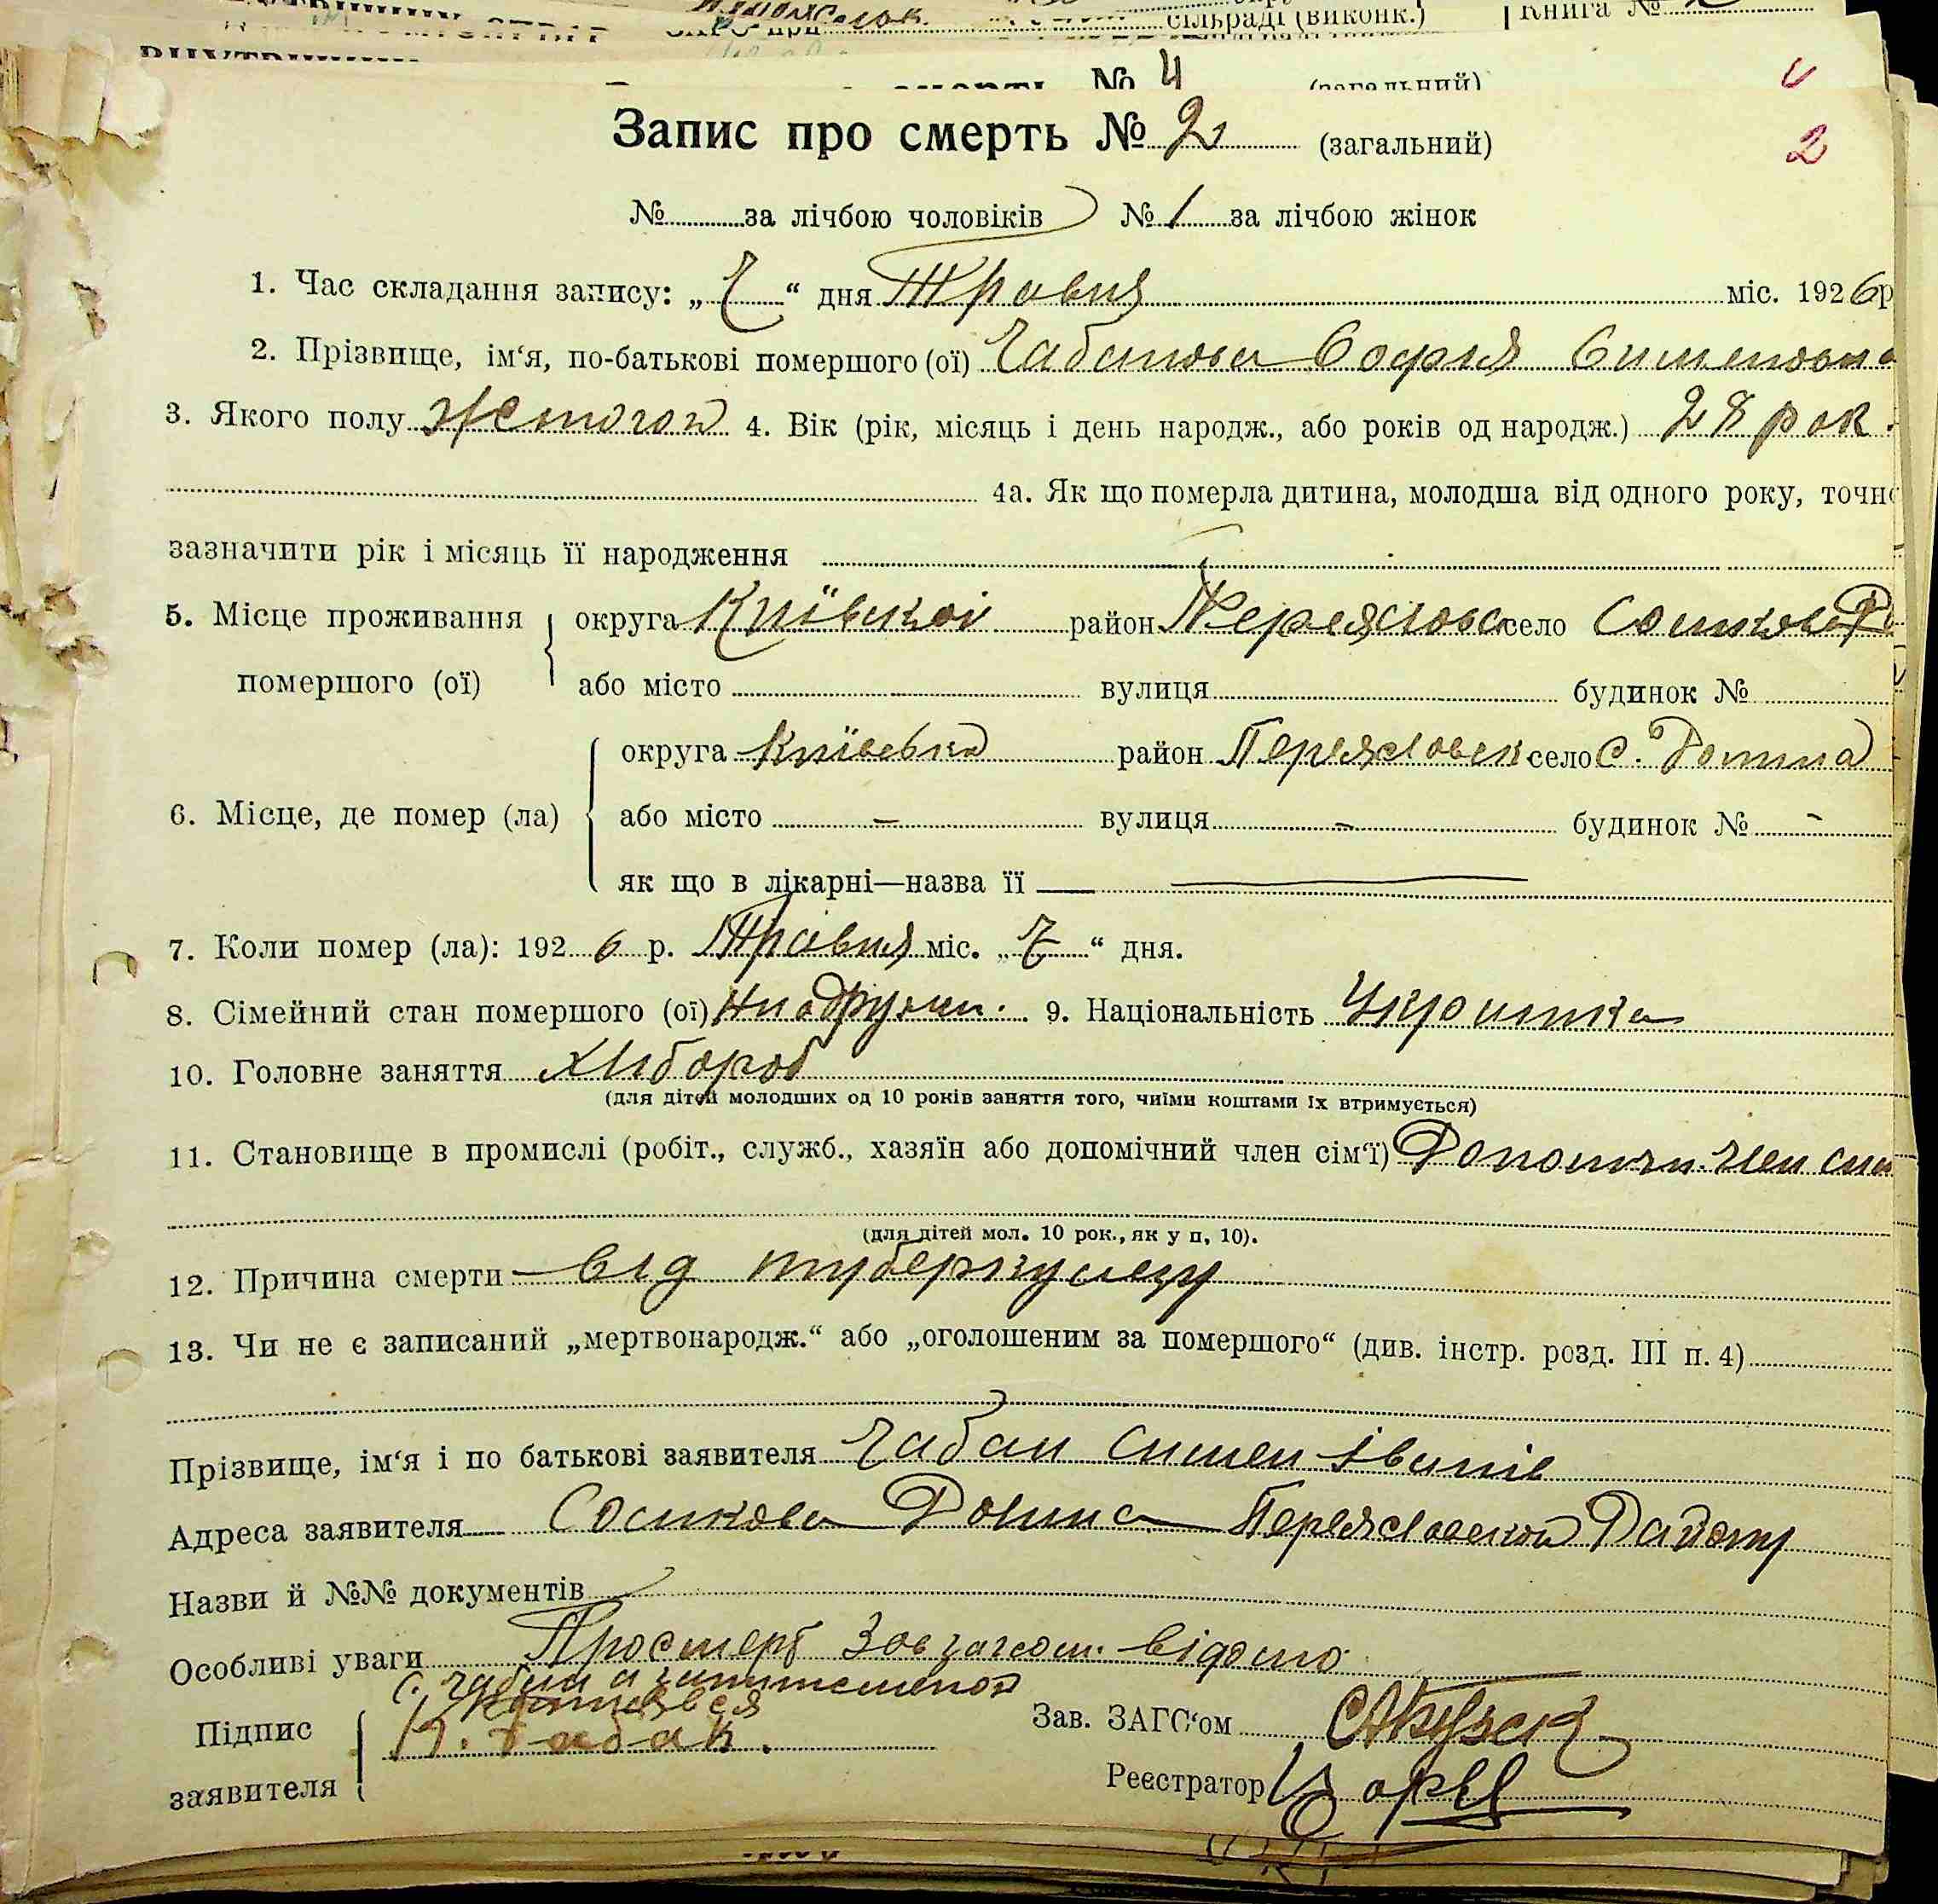 сільраді (виконк.) Книга №
№ 4 (загальний)
Запис про смерть № 2 (загальний)
2
№ за лічбою чоловіків № 1 за лічбою жінок
1. Час складання запису: „ 7 “ дня Травня міс. 1926р
2. Прізвище, ім‘я, по-батькові помершого (ої) Чабанова Софія Сименовна
3. Якого полу жіночого 4. Вік (рік, місяць і день народж., або років од народж.) 28 рок.
4а. Як що померла дитина, молодша від одного року, точно
зазначити рік і місяць її народження
5. Місце проживання округа Київської район Переяслове село Сошкова
помершого (ої) або місто вулиця будинок №
округа Київська район Переяславск село С. Долина
6. Місце, де помер (ла) або місто — вулиця — будинок № -
як що в лікарні—назва її —
7. Коли помер (ла): 192 6 р. Травня міс. „ 7 “ дня.
8. Сімейний стан помершого (ої) 9. Національність Украинка
10. Головне заняття Хлібороб
(для дітей молодших од 10 років заняття того, чиїми коштами їх втримується)
11. Становище в промислі (робіт., служб., хазяїн або допомічний член сім‘ї) Допомічн. член сим
(для дітей мол. 10 рок., як у п, 10).
12. Причина смерти від туберкулезу
13. Чи не є записаний „мертвонародж.“ або „оголошеним за помершого“ (див. інстр. розд. III п. 4)
Прізвище, ім‘я і по батькові заявителя Чабан Симен Іванів
Адреса заявителя Сошкова Долина Переяславской Району
Назви й №№ документів
Особливі уваги Просмерть Завзагсом відомо
С. Чабан а
Підпис заявителя
Зав. ЗАГС‘ом
Реєстратор